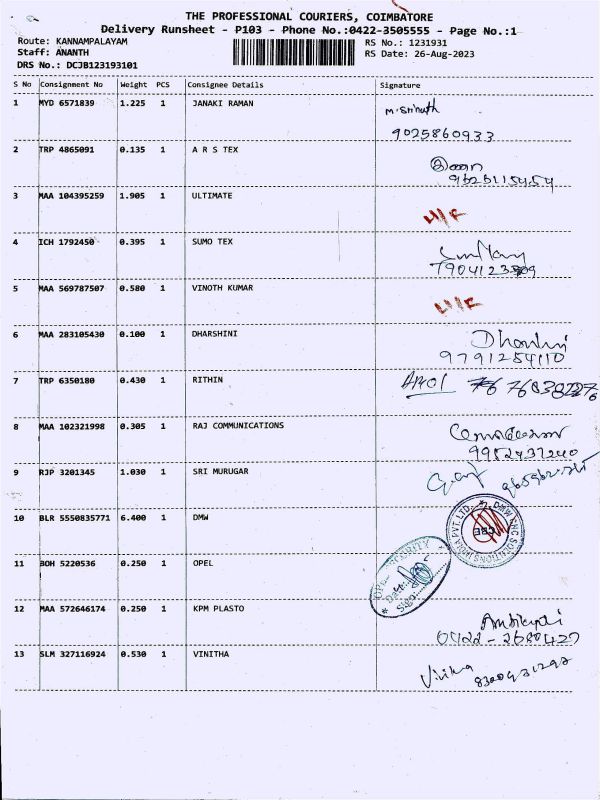 THE PROFESSIONAL COURIERS, COIMBATORE
Delivery Runsheet - P103 - Phone No.:0422-3505555 - Page No.:1
Route: KANNAMPALAYAM
RS No.: 1231931
Staff: ANANTH
RS Date: 26-Aug-2023
DRS No.: DCJB123193101
S No Consignment No Weight PCS Consignee Details Signature
1 MYD 6571839 1.225 1 JANAKI RAMAN M.Srinath
9025860933
2 TRP 4865091 0.135 1 A R S TEX
3 MAA 104395259 1.905 1 ULTIMATE
4 ICH 1792450 0.395 1 SUMO TEX
5 MAA 569787507 0.580 1 VINOTH KUMAR
6 MAA 283105430 0.100 1 DHARSHINI
9791254110
7 TRP 6350180 0.430 1 RITHIN
8 MAA 102321998 0.305 1 RAJ COMMUNICATIONS
9952437240
9 RJP 3201345 1.030 1 SRI MURUGAR
10 BLR 5550835771 6.400 1 DMW
11 BOH 5220536 0.250 1 OPEL
SECURITY
Date
Sign
12 MAA 572646174 0.250 1 KPM PLASTO
0422-2680427
13 SLM 327116924 0.530 1 VINITHA